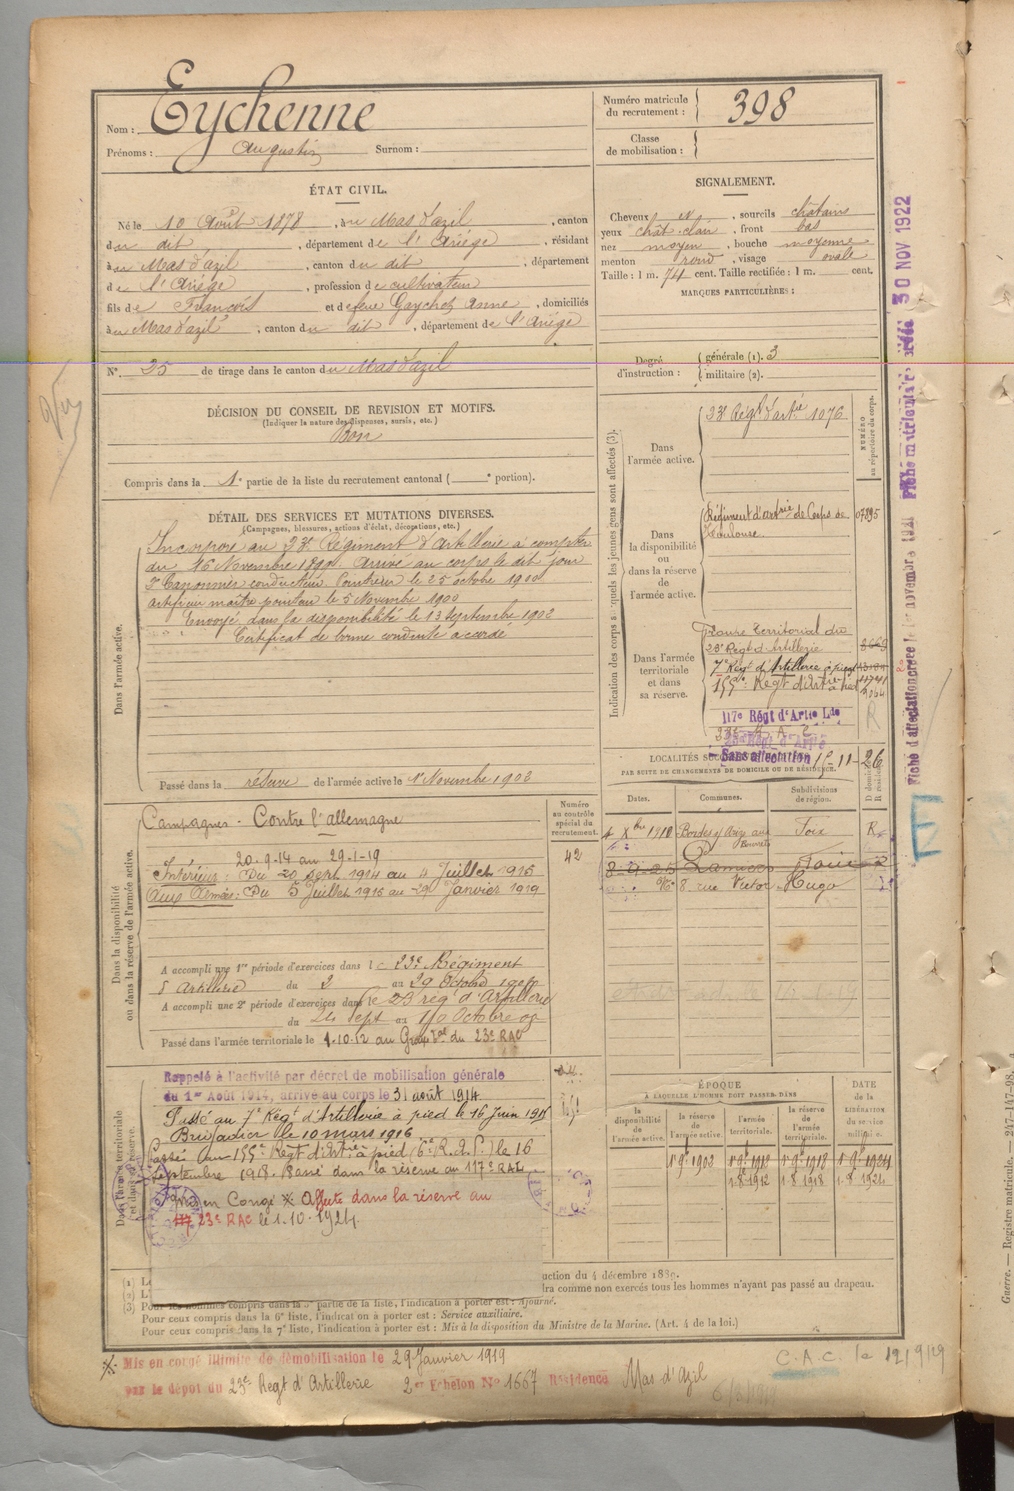 Nom : Eychenne
Prénoms : Augustin Surnom :
Numéro matricule du recrutement : 398
Classe de mobilisation :
ÉTAT CIVIL.
Né le 10 Août 1878, à u Mas d'azil, canton
du dit, département de l'Ariège, résidant
à u Mas d'azil, canton du dit, département
de l'Ariège, profession de cultivateur
fils de François et de feue Gaychet Anne, domiciliés
à u Mas d'azil, canton du dit, département de l'Ariège
N° 25 de tirage dans le canton du Mas d'azil
SIGNALEMENT.
Cheveux N, sourcils châtains
yeux chât. clair, front bas
nez moyen, bouche moyenne
menton rond, visage ovale
Taille : 1 m. 74 cent. Taille rectifiée : 1 m. cent.
MARQUES PARTICULIÈRES :
Degré d'instruction : générale (1). 3
militaire (2).
DÉCISION DU CONSEIL DE REVISION ET MOTIFS.
(Indiquer la nature des dispenses, sursis, etc.)
Bon
Compris dans la 1e partie de la liste du recrutement cantonal ( e portion).
DÉTAIL DES SERVICES ET MUTATIONS DIVERSES.
(Campagnes, blessures, actions d'éclat, décorations, etc.)
Dans l'armée active.
Incorporé au 23e Régiment d'Artillerie à compter
du 16 Novembre 1899. Arrivé au corps le dit jour
2e Canonnier conducteur. le 25 octobre 1900
artificier maître pointeur le 5 Novembre 1900
Envoyé dans la disponibilité le 13 Septembre 1902
Certificat de bonne conduite accordé
Passé dans la réserve de l'armée active le 1 Novembre 1902
Indication des corps auxquels les jeunes gens sont affectés (3).
NUMÉRO au répertoire du corps.
Dans l'armée active.
23e Régt d'artie 1076
Dans la disponibilité ou dans la réserve de l'armée active.
Régiment d'artrie de Corps de
Toulouse
Dans l'armée territoriale et dans sa réserve.
Groupe Territorial du
23e Regt d'Artillerie
7e Régt d'Artillerie à pied
155e Regt d'Artie à pied
R
117e Régt d'Artie Lde
Sans affectation 15-11-26
LOCALITÉS SUCCESSIVES
PAR SUITE DE CHANGEMENTS DE DOMICILE OU DE RÉSIDENCE.
Dates. Communes. Subdivisions de région. D domicile R résidence
Xbre 1912 Bordes s/ Arize Foix R
8-9-25 Pamiers Foix
8. rue Victor Hugo
Dans la disponibilité ou dans la réserve de l'armée active.
Numéro au contrôle spécial du recrutement.
42
Campagnes - Contre l'allemagne
20-9-14 au 29-1-19
Intérieur : Du 20 sept 1914 au 4 Juillet 1915
Aux Armées : Du 5 Juillet 1915 au 29 Janvier 1919
A accompli une 1re période d'exercices dans le 23e Régiment
d'Artillerie du 2 au 29 Octobre
A accompli une 2e période d'exercices dans le 23 reg d'Artillerie
du 24 Sept au 10 Octobre
Passé dans l'armée territoriale le 1-10-12 au Groupe Tal du 23e RAC
Dans l'armée territoriale et dans sa réserve.
Rappelé à l'activité par décret de mobilisation générale
du 1er Août 1914, arrivé au corps le 31 août 1914.
Passé au 7e Régt d'Artillerie à pied le 16 Juin 1915
Brigadier le 10 mars 1916
Passé au 155e Regt d'Artie à pied le 16
Septembre 1918. Passé dans la réserve au 117e RAL
en Congé X Affecté dans la réserve au
23e RAC le 1-10-1924.
ÉPOQUE
À LAQUELLE L'HOMME DOIT PASSER DANS
la disponibilité de l'armée active. la réserve de l'armée active. l'armée territoriale. la réserve de l'armée territoriale.
DATE de la LIBÉRATION du service militaire.
1er 9e 1902 1er 9e 1912 1er 9e 1918 1er 9e 1924
1-8-1912 1-8-1918 1-8-1924
uction du 4 décembre 1889.
dra comme non exercés tous les hommes n'ayant pas passé au drapeau.
(3) Pour les hommes compris dans la 5e partie de la liste, l'indication à porter est : Ajourné.
Pour ceux compris dans la 6e liste, l'indication à porter est : Service auxiliaire.
Pour ceux compris dans la 7e liste, l'indication à porter est : Mis à la disposition du Ministre de la Marine. (Art. 4 de la loi.)
X Mis en congé illimité de démobilisation le 29 Janvier 1919
par le dépôt du 23e Regt d'Artillerie 2e Echelon N° 1667 Résidence Mas d'Azil
C.A.C. le 12/9/29
30 NOV 1922
Guerre. — Registre matricule. — 247-147-98.